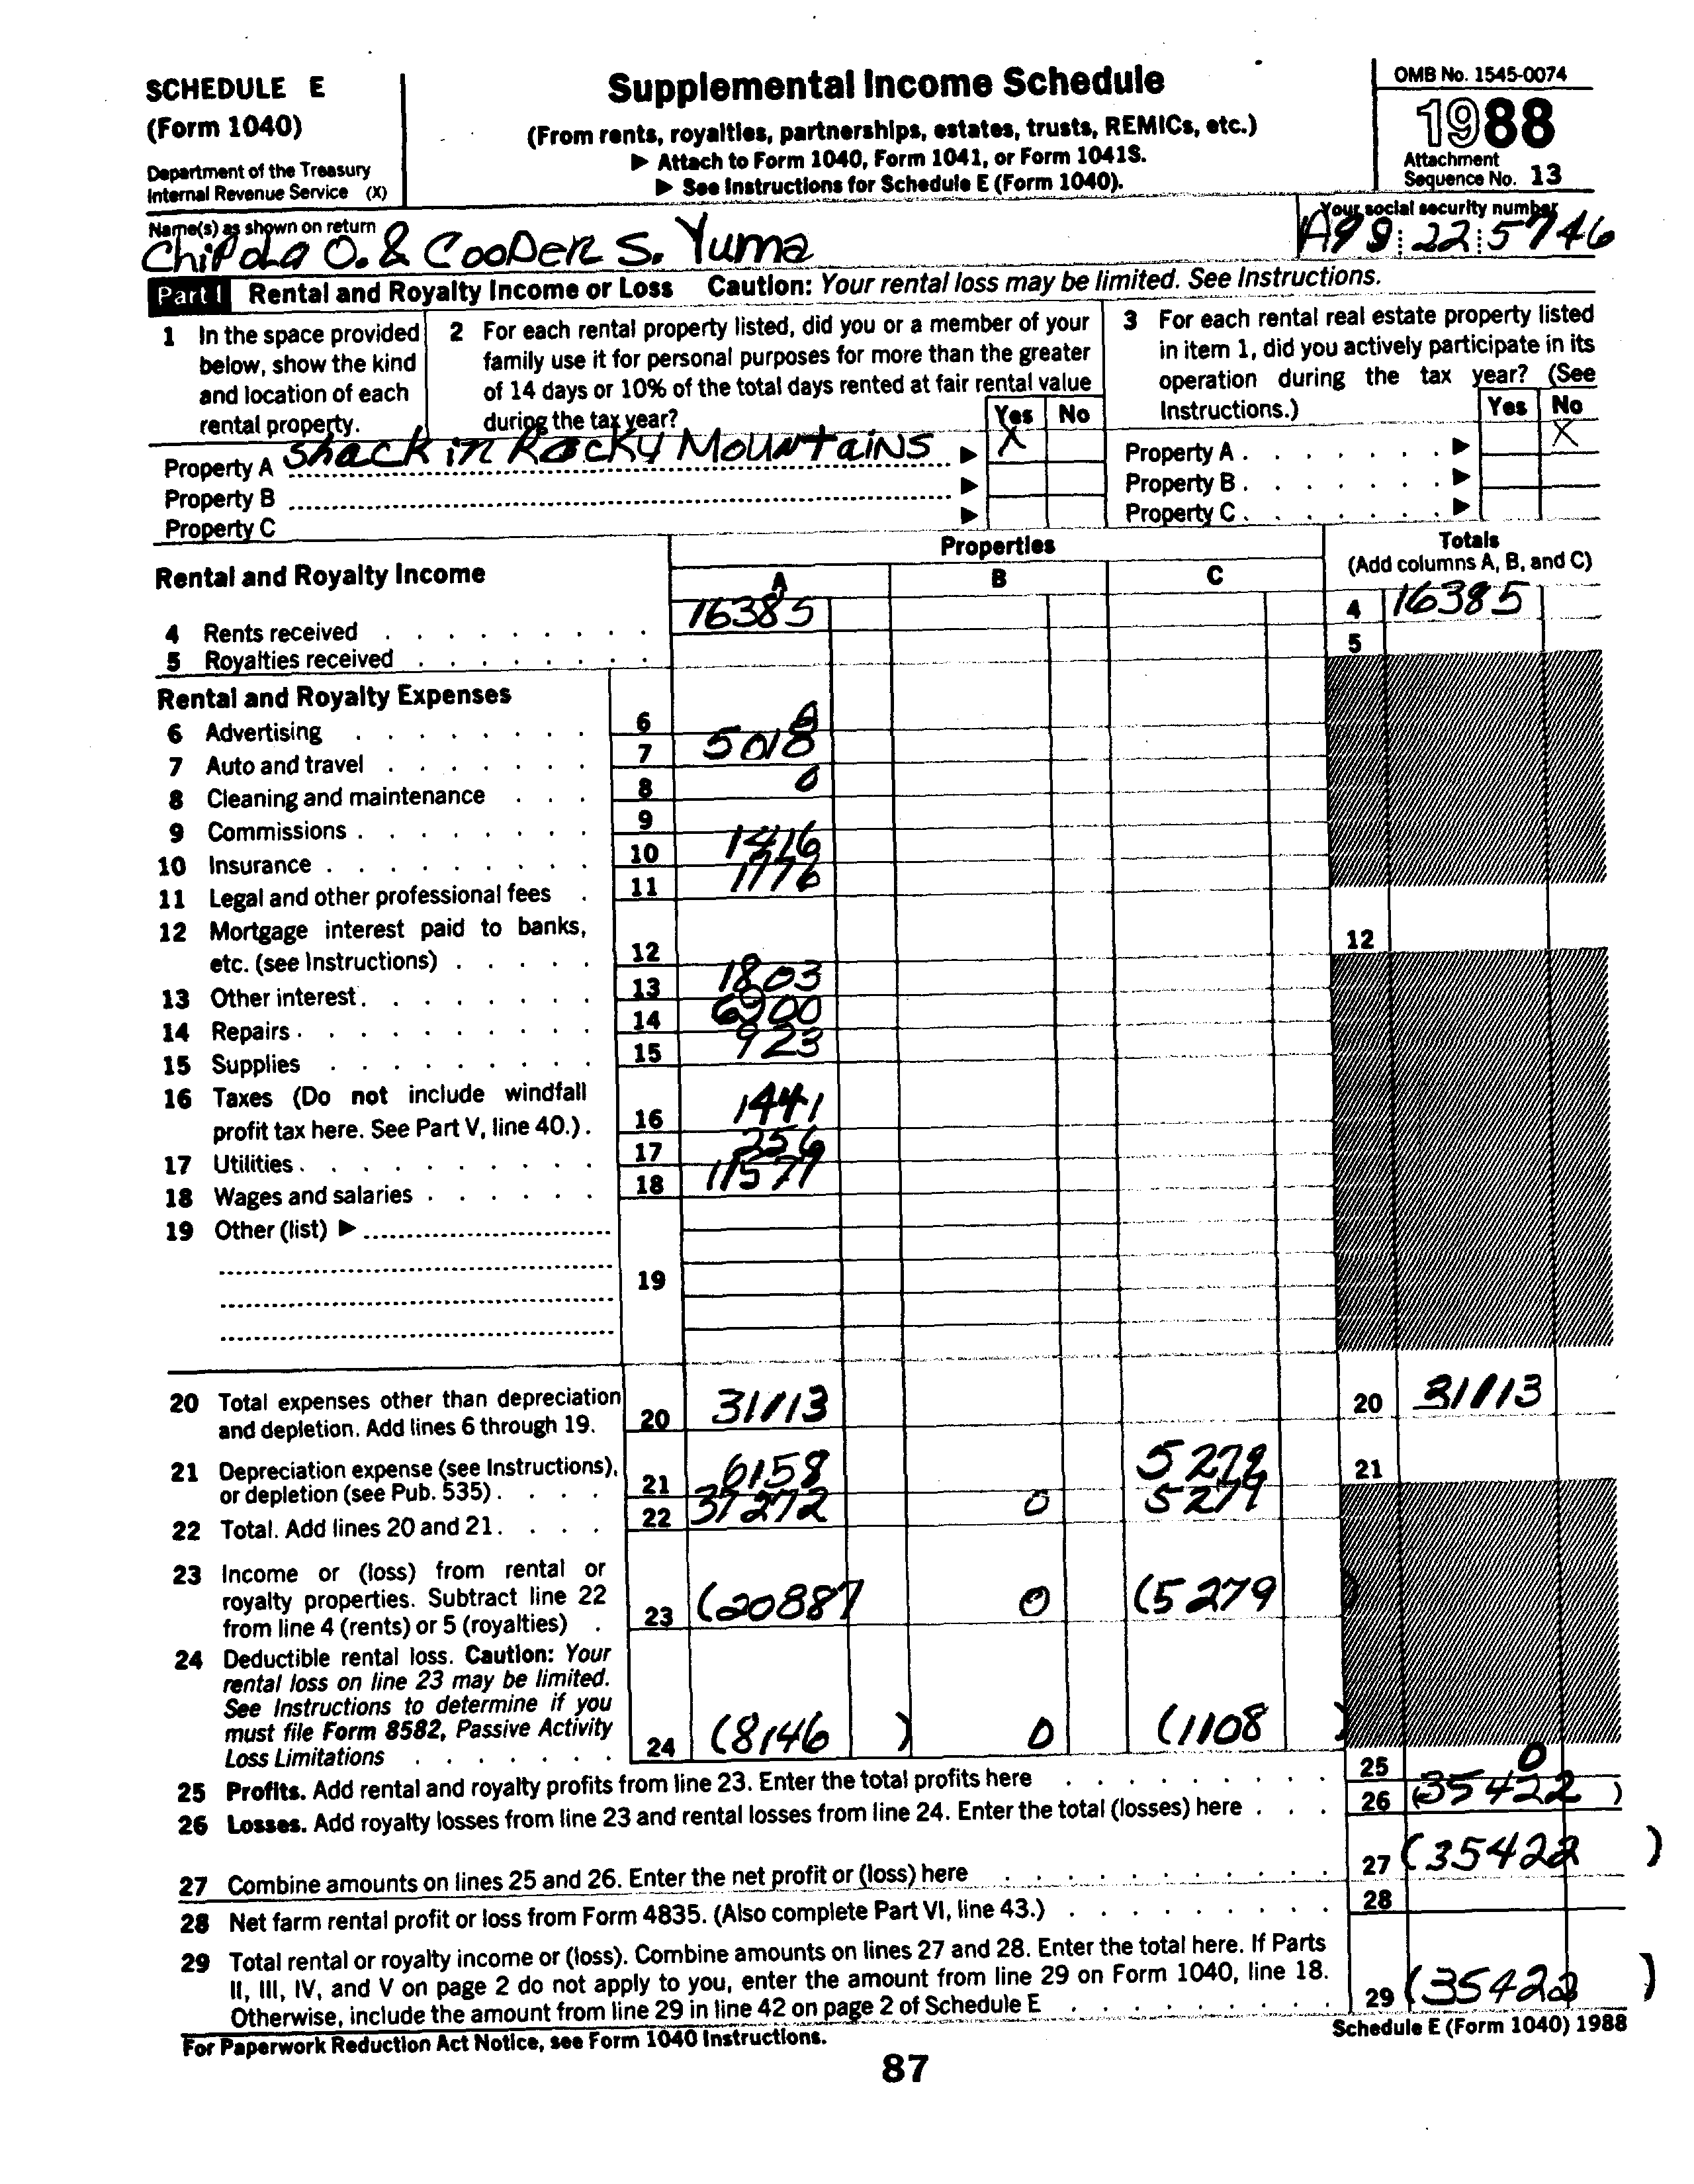 SCHEDULE E
(Form 1040)
Department of the Treasury
Internal Revenue Service (X)
Supplemental Income Schedule
(From rents, royalties, partnerships, estates, trusts, REMICs, etc.)
▶ Attach to Form 1040, Form 1041, or Form 1041S.
▶ See Instructions for Schedule E (Form 1040).
OMB No. 1545-0074
1988
Attachment
Sequence No. 13
Name(s) as shown on return
Chipola O. & Cooper S. Yuma
Your social security number
22 5746
Part I Rental and Royalty Income or Loss Caution: Your rental loss may be limited. See Instructions.
1 In the space provided
below, show the kind
and location of each
rental property.
2 For each rental property listed, did you or a member of your
family use it for personal purposes for more than the greater
of 14 days or 10% of the total days rented at fair rental value
during the tax year?
Yes No
3 For each rental real estate property listed
in item 1, did you actively participate in its
operation during the tax year? (See
Instructions.)
Yes No
Property A Shack in Rocky Mountains ▶ X
Property B ▶
Property C ▶
Property A . . . . . . . ▶ X
Property B . . . . . . . ▶
Property C . . . . . . . ▶
Rental and Royalty Income
Properties
A B C
Totals
(Add columns A, B, and C)
4 Rents received 16385 4 16385
5 Royalties received 5
Rental and Royalty Expenses
6 Advertising 6
7 Auto and travel 7 5018
8 Cleaning and maintenance 8 0
9 Commissions 9
10 Insurance 10 1416
11 Legal and other professional fees 11 1776
12 Mortgage interest paid to banks,
etc. (see Instructions) 12 12
13 Other interest 13 1803
14 Repairs 14 6900
15 Supplies 15 923
16 Taxes (Do not include windfall
profit tax here. See Part V, line 40.) 16 1441
17 Utilities 17 256
18 Wages and salaries 18 11577
19 Other (list) ▶
19
20 Total expenses other than depreciation
and depletion. Add lines 6 through 19. 20 31113 20 31113
21 Depreciation expense (see Instructions),
or depletion (see Pub. 535) 21 6158 5279 21
22 Total. Add lines 20 and 21 22 37272 0 5279
23 Income or (loss) from rental or
royalty properties. Subtract line 22
from line 4 (rents) or 5 (royalties) 23 (20887 0 (5279 )
24 Deductible rental loss. Caution: Your
rental loss on line 23 may be limited.
See Instructions to determine if you
must file Form 8582, Passive Activity
Loss Limitations 24 (8146 ) 0 (1108 )
25 Profits. Add rental and royalty profits from line 23. Enter the total profits here 25 0
26 Losses. Add royalty losses from line 23 and rental losses from line 24. Enter the total (losses) here 26 (35422 )
27 Combine amounts on lines 25 and 26. Enter the net profit or (loss) here 27 (35422 )
28 Net farm rental profit or loss from Form 4835. (Also complete Part VI, line 43.) 28
29 Total rental or royalty income or (loss). Combine amounts on lines 27 and 28. Enter the total here. If Parts
II, III, IV, and V on page 2 do not apply to you, enter the amount from line 29 on Form 1040, line 18.
Otherwise, include the amount from line 29 in line 42 on page 2 of Schedule E 29 (35422 )
For Paperwork Reduction Act Notice, see Form 1040 Instructions.
Schedule E (Form 1040) 1988
87